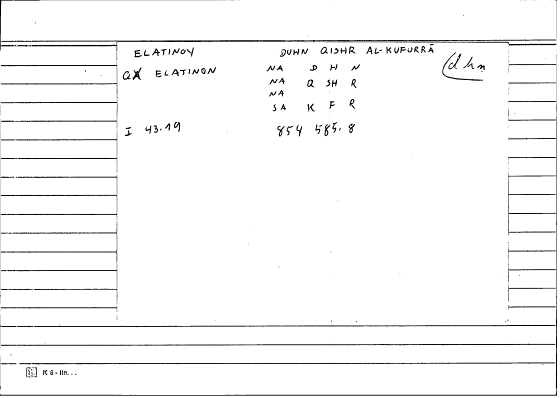 ELATINOY DUHN QISHR AL-KUFURRĀ
QX ELATINON NA D H N (dhn
NA Q SH R
NA
SA K F R
I 43.19 854 585.8
K 6 - lin...